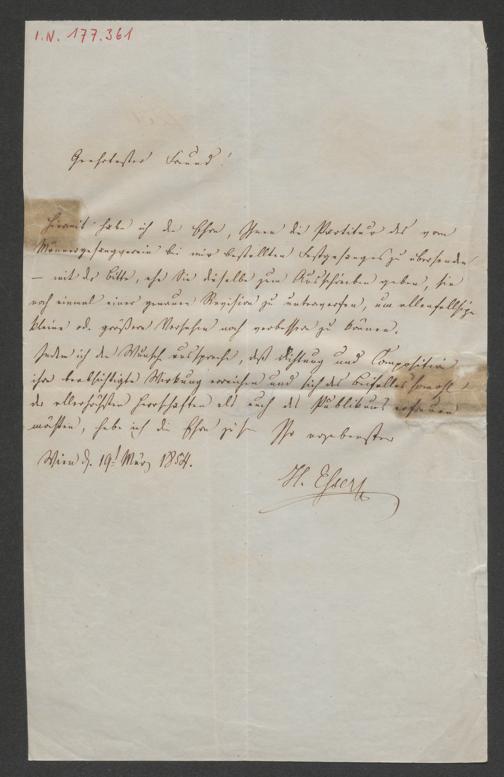 I.N. 177.361
Geehrtester Freund!
Hiemit habe ich die Ehre, Ihnen die Partitur des vom
Männergesangverein bei mir bestellten Festgesanges zu übersenden
– mit der Bitte, ehe Sie dieselbe zum Ausschreiben geben, sie
noch einmal einer genauen Revision zu unterwerfen, um allenfallsige
kleine od. größere Versehen noch verbessern zu können.
Indem ich den Wunsch ausspreche, daß Dichtung und Composition
ihre beabsichtigte Wirkung erreichen und sich des Beifalles sowohl
der allerhöchsten Herrschaften als auch des Publikums erfreuen
möchten, habe ich die Ehre zu sein Ihr ergebenster
Wien d. 19t März 1854.
H. Esser